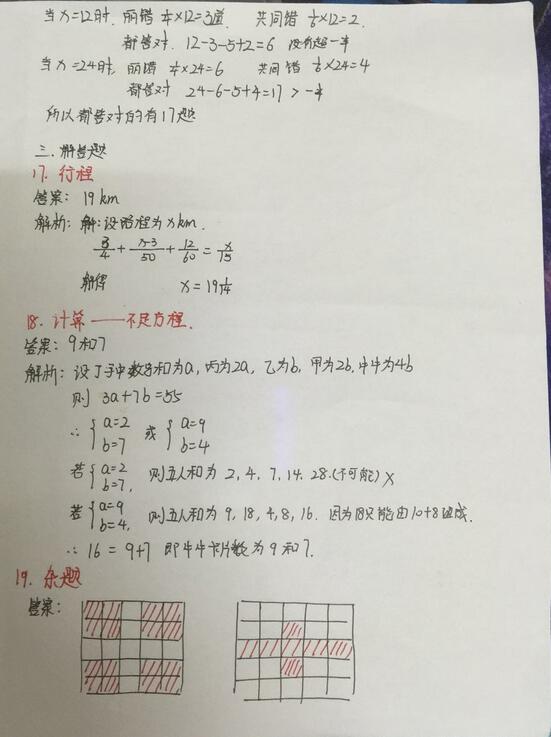 当x=12时. 丽错 1/4×12=3道. 共同错 1/6×12=2.
都答对. 12-3-5+2=6 没有超一半
当x=24时, 丽错 1/4×24=6 共同错 1/6×24=4
都答对 24-6-5+4=17 > 一半
所以都答对的有17题
三. 解答题
17. 行程
答案: 19km
解析: 解:设路程为xkm.
3/4 + x-3/50 + 12/60 = x/15
解得 x=19 1/14
18. 计算——不定方程.
答案: 9和7
解析: 设丁手中数字和为a, 丙为2a, 乙为b, 甲为2b, 牛牛为4b
则 3a+7b=55
∴ { a=2 b=7 或 { a=9 b=4
若 { a=2 b=7, 则五人和为 2, 4, 7, 14, 28.(不可能) ×
若 { a=9 b=4, 则五人和为 9, 18, 4, 8, 16. 因为18只能由10+8组成.
∴ 16 = 9+7 即牛牛卡片数为9和7.
19. 杂题
答案: